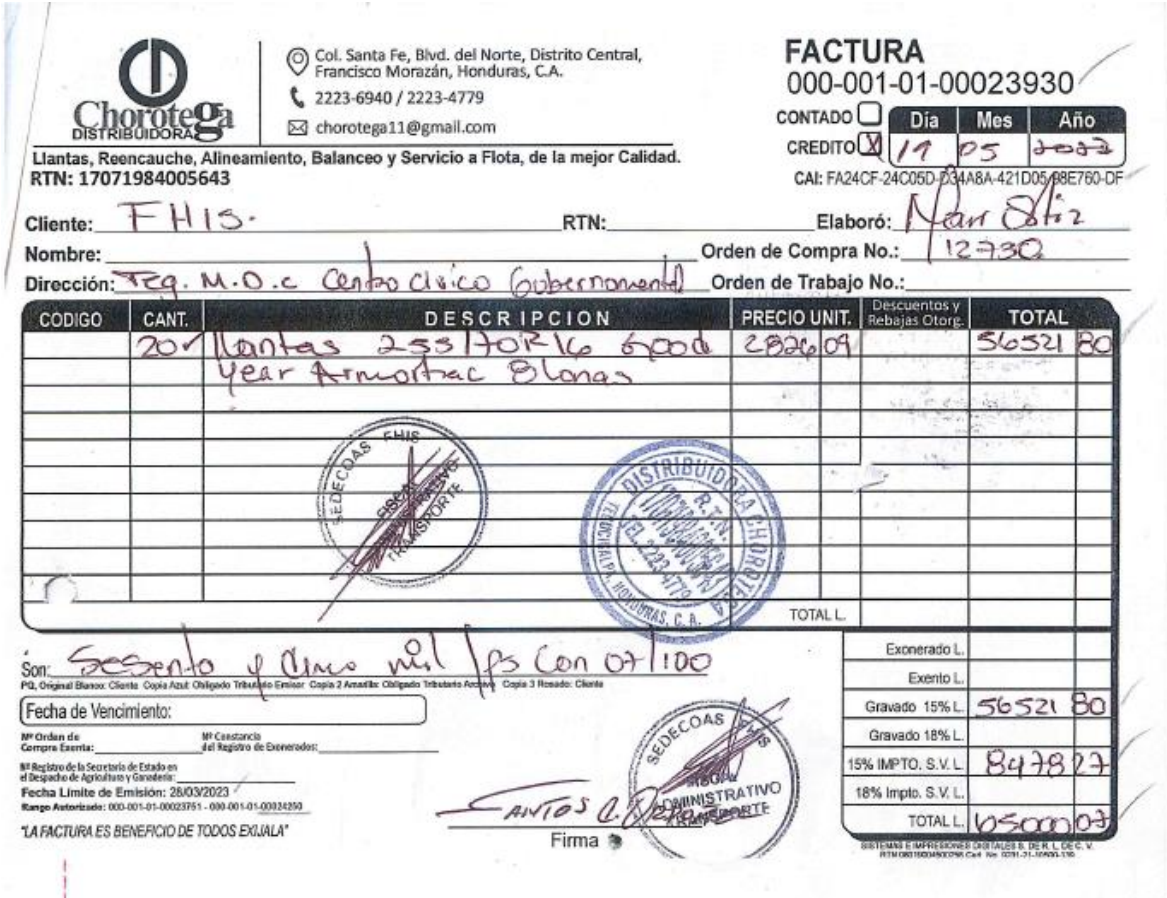 Chorotega
DISTRIBUIDORA
Col. Santa Fe, Blvd. del Norte, Distrito Central,
Francisco Morazán, Honduras, C.A.
2223-6940 / 2223-4779
chorotega11@gmail.com
Llantas, Reencauche, Alineamiento, Balanceo y Servicio a Flota, de la mejor Calidad.
RTN: 17071984005643
FACTURA
000-001-01-00023930
CONTADO
CREDITO X
Día Mes Año
19 05
CAI: FA24CF-24C05D-D34A8A-421D05-98E760-DF
Cliente: FHIS. RTN: Elaboró:
Nombre: Orden de Compra No.: 12730
Dirección: Teg. M.D.c Centro Civico Gubernamental Orden de Trabajo No.:
CODIGO CANT. DESCRIPCION PRECIO UNIT. Descuentos y Rebajas Otorg. TOTAL
20 llantas 255/70R16 Good 2826 09 56521 80
year Armortrac 8lonas
SEDECOAS FHIS
FISCAL
ADMINISTRATIVO
TRANSPORTE
DISTRIBUIDORA CHOROTEGA
R.T.N.
TEL. 2223-4779
TEGUCIGALPA, HONDURAS, C.A.
TOTAL L.
Son: Sesenta y Cinco mil lps Con 07/100
PQ, Original Blanco: Cliente Copia Azul: Obligado Tributario Emisor Copia 2 Amarilla: Obligado Tributario Archivo Copia 3 Rosado: Cliente
Fecha de Vencimiento:
Nº Orden de Compra Exenta: Nº Constancia del Registro de Exonerados:
Nº Registro de la Secretaria de Estado en
el Despacho de Agricultura y Ganadería:
Fecha Límite de Emisión: 28/03/2023
Rango Autorizado: 000-001-01-00023751 - 000-001-01-00024250
"LA FACTURA ES BENEFICIO DE TODOS EXIJALA"
SEDECOAS FHIS
FISCAL
ADMINISTRATIVO
TRANSPORTE
Firma
Exonerado L.
Exento L.
Gravado 15% L. 56521 80
Gravado 18% L.
15% IMPTO. S.V. L. 8478 27
18% Impto. S.V. L.
TOTAL L. 65000 07
SISTEMAS E IMPRESIONES DIGITALES S. DE R. L. DE C. V.